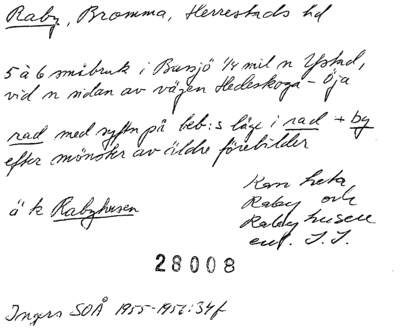 Raby, Bromma, Herrestads hd
5 à 6 småbruk i Bussjö 1/4 mil n Ystad,
vid n sidan av vägen Hedeskoga - Öja
rad med syftn på beb:s läge i rad + by
efter mönster av äldre förebilder
Kan heta
ä k Rabyhusen
Raby och
Rabyhusen
enl. I.I.
28008
Ingers SOÅ 1955-1956:34f